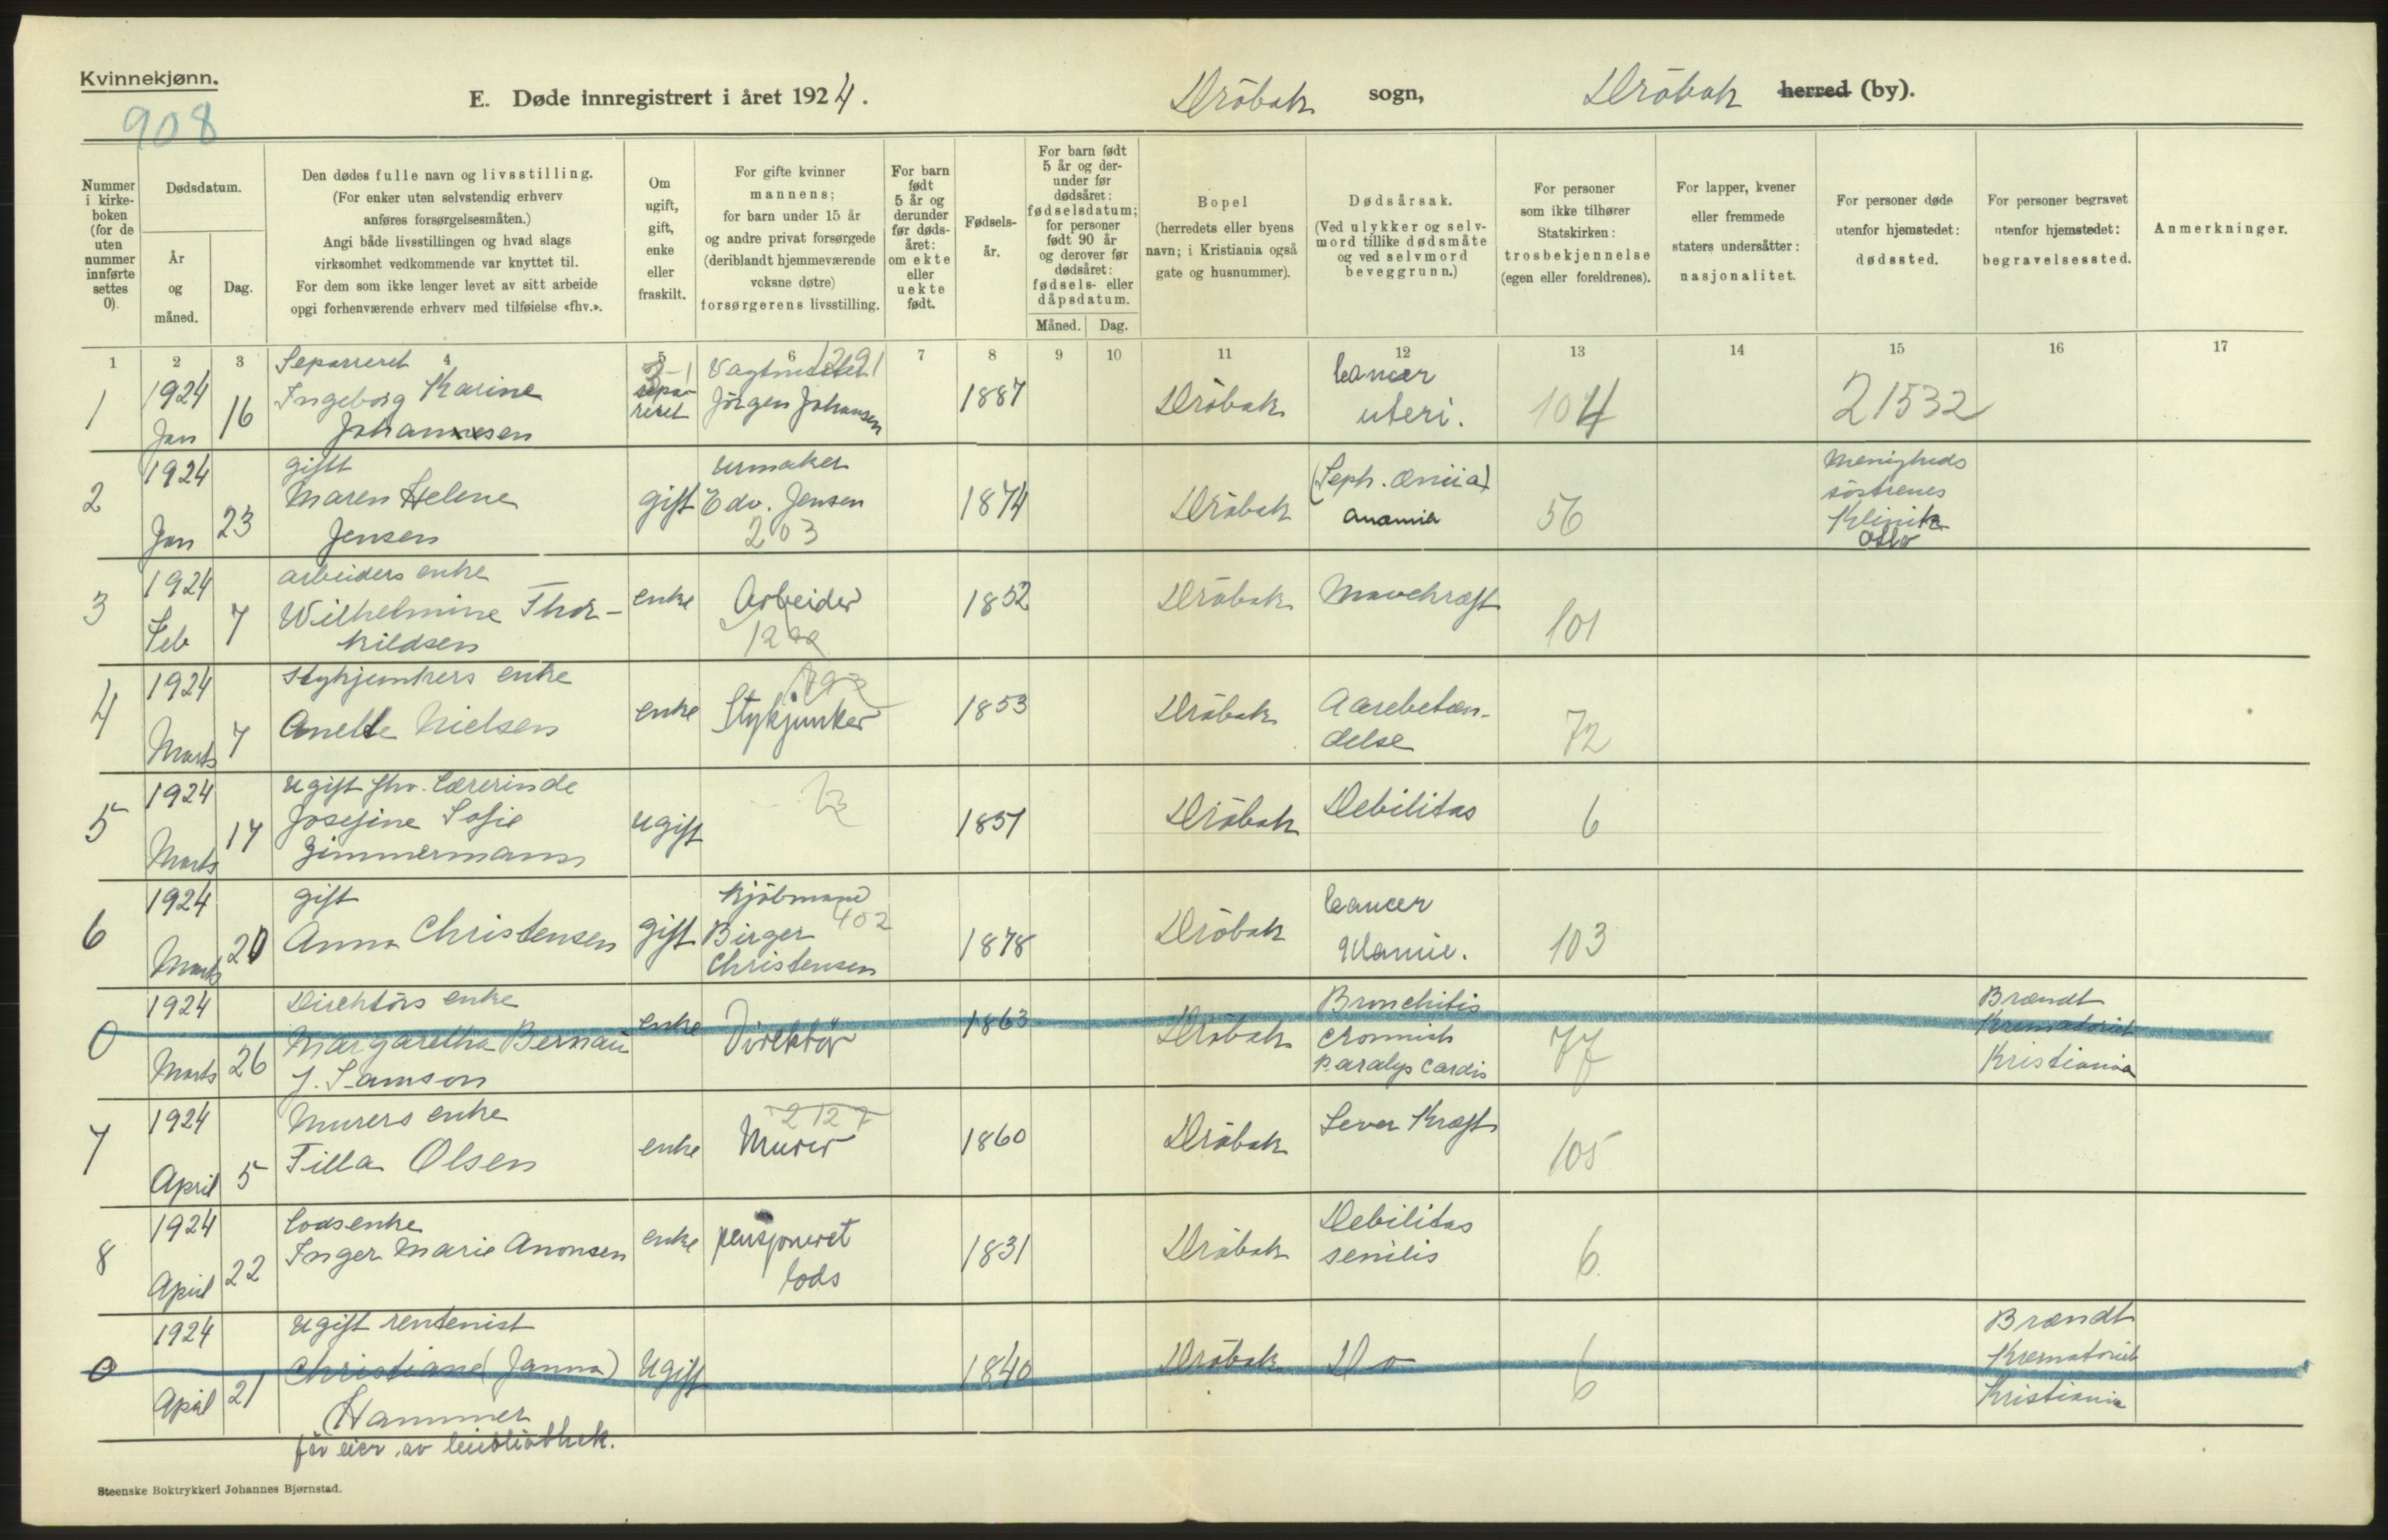 Kvinnekjønn.
908
E. Døde innregistrert i året 1924.
Drøbak sogn,
Drøbak herred (by).
Nummer i kirke-boken (for de uten nummer innførte settes 0).
Dødsdatum.
År og måned.
Dag.
Den dødes fulle navn og livsstilling.
(For enker uten selvstendig erhverv
anføres forsørgelsesmåten.)
Angi både livsstillingen og hvad slags
virksomhet vedkommende var knyttet til.
For dem som ikke lenger levet av sitt arbeide
opgi forhenværende erhverv med tilføielse «fhv.».
Om ugift, gift, enke eller fraskilt.
For gifte kvinner
mannens;
for barn under 15 år
og andre privat forsørgede
(deriblandt hjemmeværende
voksne døtre)
forsørgerens livsstilling.
For barn født 5 år og derunder før døds-året: om ekte eller uekte født.
Fødsels-år.
For barn født 5 år og der-under før dødsåret: fødselsdatum; for personer født 90 år og derover før dødsåret: fødsels- eller dåpsdatum.
Måned.
Dag.
Bopel
(herredets eller byens
navn; i Kristiania også
gate og husnummer).
Dødsårsak.
(Ved ulykker og selv-
mord tillike dødsmåte
og ved selvmord
beveggrunn.)
For personer
som ikke tilhører
Statskirken:
trosbekjennelse
(egen eller foreldrenes).
For lapper, kvener
eller fremmede
staters undersåtter:
nasjonalitet.
For personer døde
utenfor hjemstedet:
dødssted.
For personer begravet
utenfor hjemstedet:
begravelsessted.
Anmerkninger.
1 2 3 4 5 6 7 8 9 10 11 12 13 14 15 16 17
1 1924 Jan 16
Separeret
Ingeborg Karine
Johannesen
separeret
Vagtmester
Jörgen Johansen
1887 Dröbak
Cancer
uteri.
104 21532
2 1924 Jan 23
gift
Maren Helene
Jensen
gift
urmaker
Edv. Jensen
203
1874 Dröbak
anæmia
56
Menigheds
söstrenes
Klinik
Oslo
3 1924 Feb 7
arbeiders enke
Wilhelmine Thor-
kildsen
enke
Arbeider
1852 Dröbak Mavekræft
101
4 1924 Marts 7
Stykjunkers enke
Anette Nielsen
enke
Stykjunker
1853 Dröbak
Aarebetæn-
delse
72
5 1924 Marts 17
ugift fhv. Lærerinde
Josefine Sofie
Zimmermann
ugift
1837 Dröbak Debilitas
6
6 1924 Marts 20
gift
Anna Christensen
gift
Kjöbmand
Birger 402
Christensen
1878 Dröbak
Cancer
103
0 1924 Marts 26
Direktörs enke
Margaretha Bernau
f. Samson
enke
Direktör
1863 Dröbak
Bronchitis
cronnisk
paralys cardis
77
Brændt
Krematoriet
Kristiania
7 1924 April 5
Murers enke
Tilla Olsen
enke
2127
Murer
1860 Dröbak
Lever Kræft
105
8 1924 April 22
Lodsenke
Inger Marie Anonsen
enke
pensjoneret
lods
1831 Dröbak
Debilitas
senilis
6
0 1924 April 21
ugift rentenist
Christiane (Janna)
Hammer
før eier av leiebliothek.
Ugift
1840 Dröbak Do
6
Brændt
Krematoriet
Kristiania
Steenske Boktrykkeri Johannes Bjørnstad.